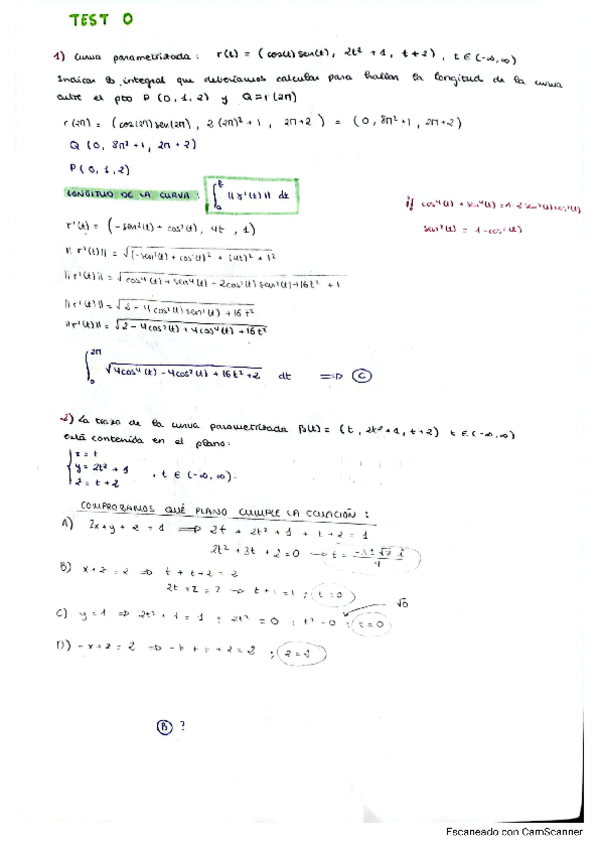 TEST 0
1) Curva parametrizada: r(t) = (cos(t)sen(t), 2t² + 1, t + 2), t ∈ (-∞, ∞)
Indicar la integral que deberíamos calcular para hallar la longitud de la curva
entre el pto P (0, 1, 2) y Q = r (2π)
r(2π) = (cos(2π)sen(2π), 2(2π)² + 1, 2π + 2) = (0, 8π² + 1, 2π + 2)
Q (0, 8π² + 1, 2π + 2)
P (0, 1, 2)
LONGITUD DE LA CURVA: ∫ ||r'(t)|| dt
cos⁴(t) + sen⁴(t) = 1 - 2sen²(t)cos²(t)
sen²(t) = 1 - cos²(t)
r'(t) = (-sen²(t) + cos²(t), 4t, 1)
||r'(t)|| = √(-sen²(t) + cos²(t))² + (4t)² + 1²
||r'(t)|| = √cos⁴(t) + sen⁴(t) - 2cos²(t)sen²(t) + 16t² + 1
||r'(t)|| = √2 - 4cos²(t)sen²(t) + 16t²
||r'(t)|| = √2 - 4cos²(t) + 4cos⁴(t) + 16t²
∫₀^2π √4cos⁴(t) - 4cos²(t) + 16t² + 2 dt => C
2) La traza de la curva parametrizada β(t) = (t, 2t² + 1, t + 2) t ∈ (-∞, ∞)
está contenida en el plano:
x = t
y = 2t² + 1 , t ∈ (-∞, ∞).
z = t + 2
COMPROBAMOS QUÉ PLANO CUMPLE LA ECUACIÓN:
A) 2x + y + z = 1 => 2t + 2t² + 1 + t + 2 = 1
2t² + 3t + 2 = 0 → t = -3 ± √7 i / 4
B) x + z = 2 => t + t + 2 = 2
2t + 2 = 2 → t + 1 = 1 ; t = 0
√0
C) y = 1 => 2t² + 1 = 1 ; 2t² = 0 ; t² = 0 ; t = 0
D) -x + z = 2 => -t + t + 2 = 2 ; 2 = 2
B ?
Escaneado con CamScanner